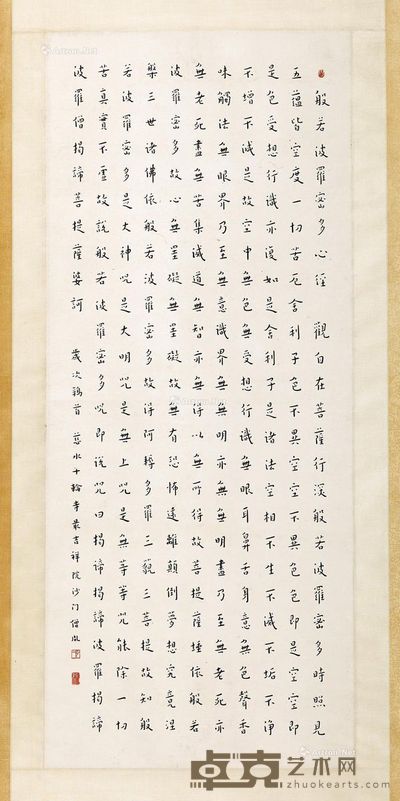 般若波羅密多心經 觀自在菩薩行深般若波羅密多時照見
五蘊皆空度一切苦厄舍利子色不異空空不異色色即是空空即
是色受想行識亦復如是舍利子是諸法空相不生不滅不垢不淨
不增不減是故空中無色無受想行識無眼耳鼻舌身意無色聲香
味觸法無眼界乃至無意識界無無明亦無無明盡乃至無老死亦
無老死盡無苦集滅道無智亦無得以無所得故菩提薩埵依般若
波羅密多故心無罣礙無罣礙故無有恐怖遠離顛倒夢想究竟涅
槃三世諸佛依般若波羅密多故得阿耨多羅三藐三菩提故知般
若波羅密多是大神咒是大明咒是無上咒是無等等咒能除一切
苦真實不虛故說般若波羅密多咒即說咒曰揭諦揭諦波羅揭諦
波羅僧揭諦菩提薩婆訶
歲次鶉首 慈水十輪寺最吉祥院沙门僧胤
卓克艺术网
zhuokearts.com